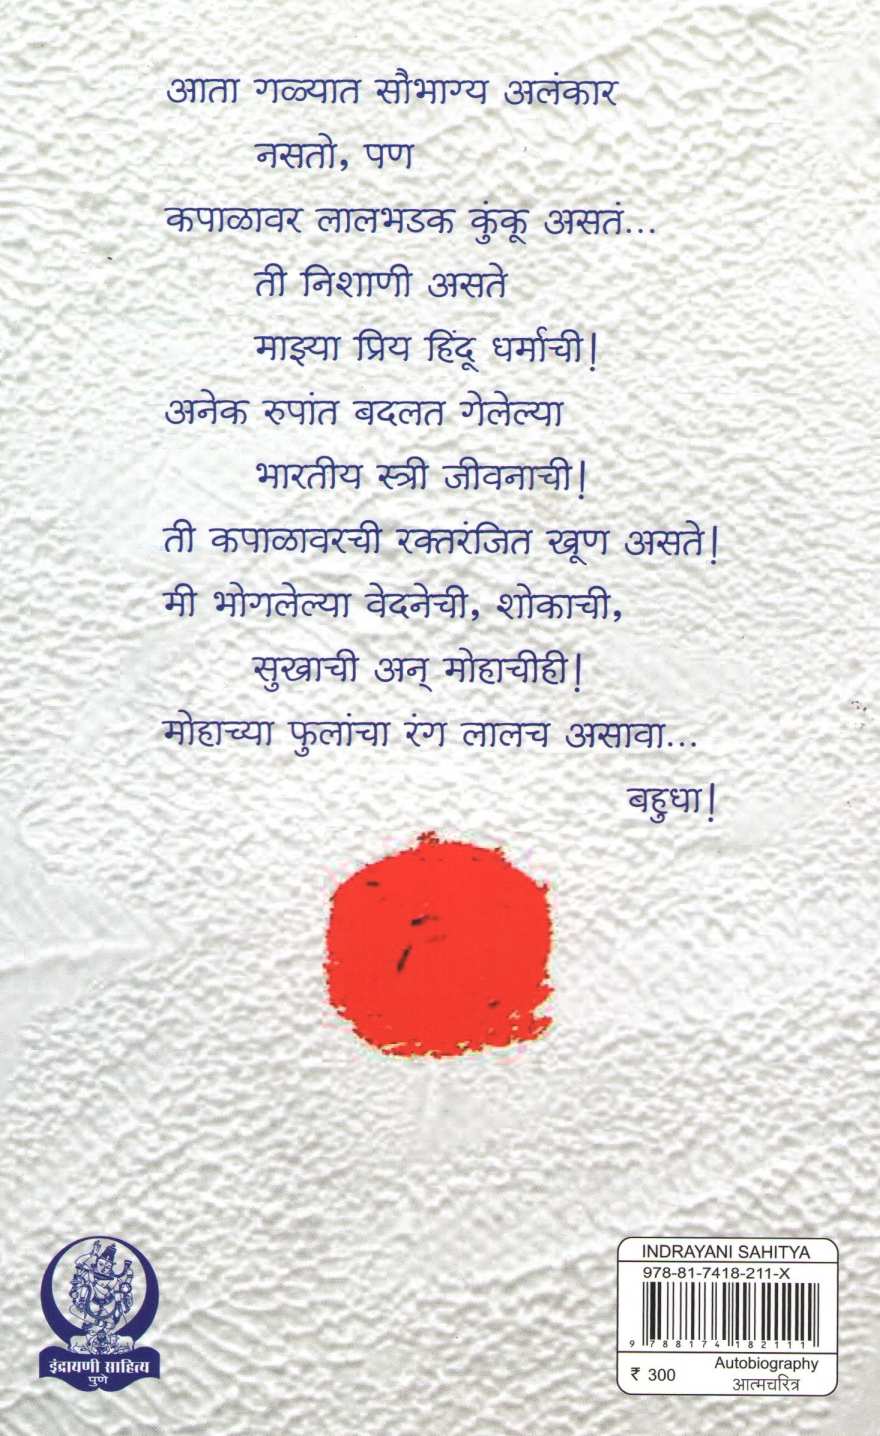 आता गळ्यात सौभाग्य अलंकार
नसतो, पण
कपाळावर लालभडक कुंकू असतं...
ती निशाणी असते
माझ्या प्रिय हिंदू धर्माची!
अनेक रुपांत बदलत गेलेल्या
भारतीय स्त्री जीवनाची!
ती कपाळावरची रक्तरंजित खूण असते!
मी भोगलेल्या वेदनेची, शोकाची,
सुखाची अन् मोहाचीही!
मोहाच्या फुलांचा रंग लालच असावा...
बहुधा!
इंद्रायणी साहित्य
पुणे
INDRAYANI SAHITYA
978-81-7418-211-X
9 788174 182111
₹ 300
Autobiography
आत्मचरित्र